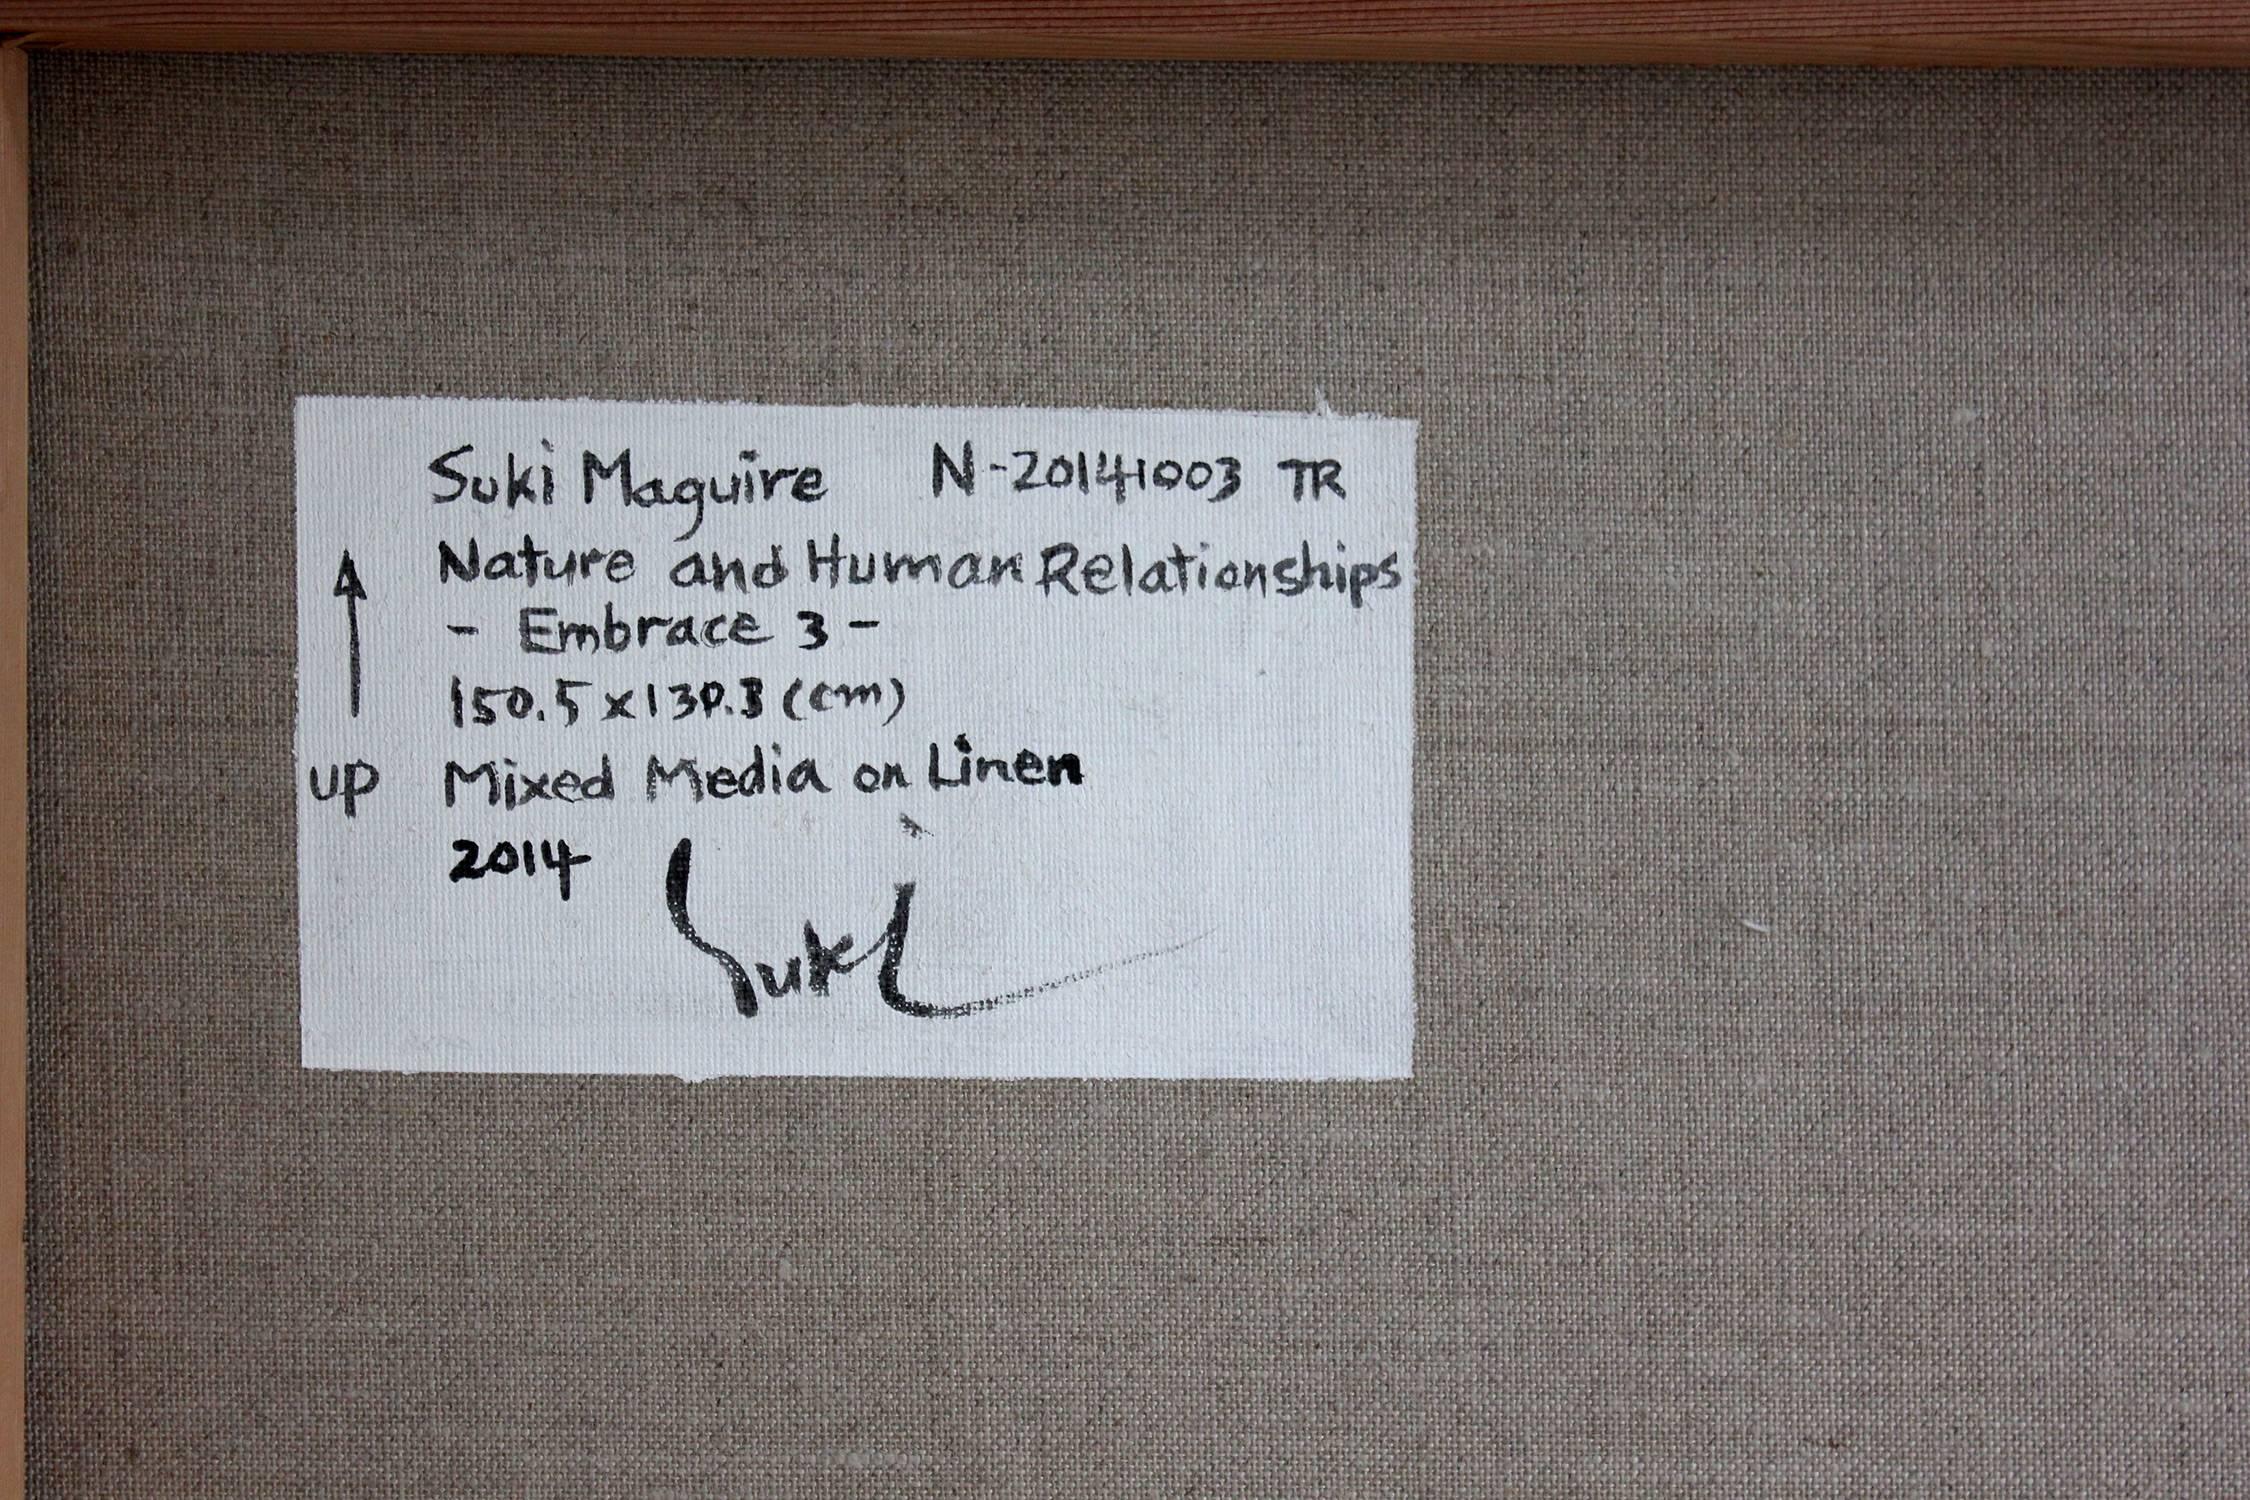 Suki Maguire N-20141003 TR
Nature and Human Relationships
- Embrace 3 -
150.5 x 130.3 (cm)
up Mixed Media on Linen
2014
Suki